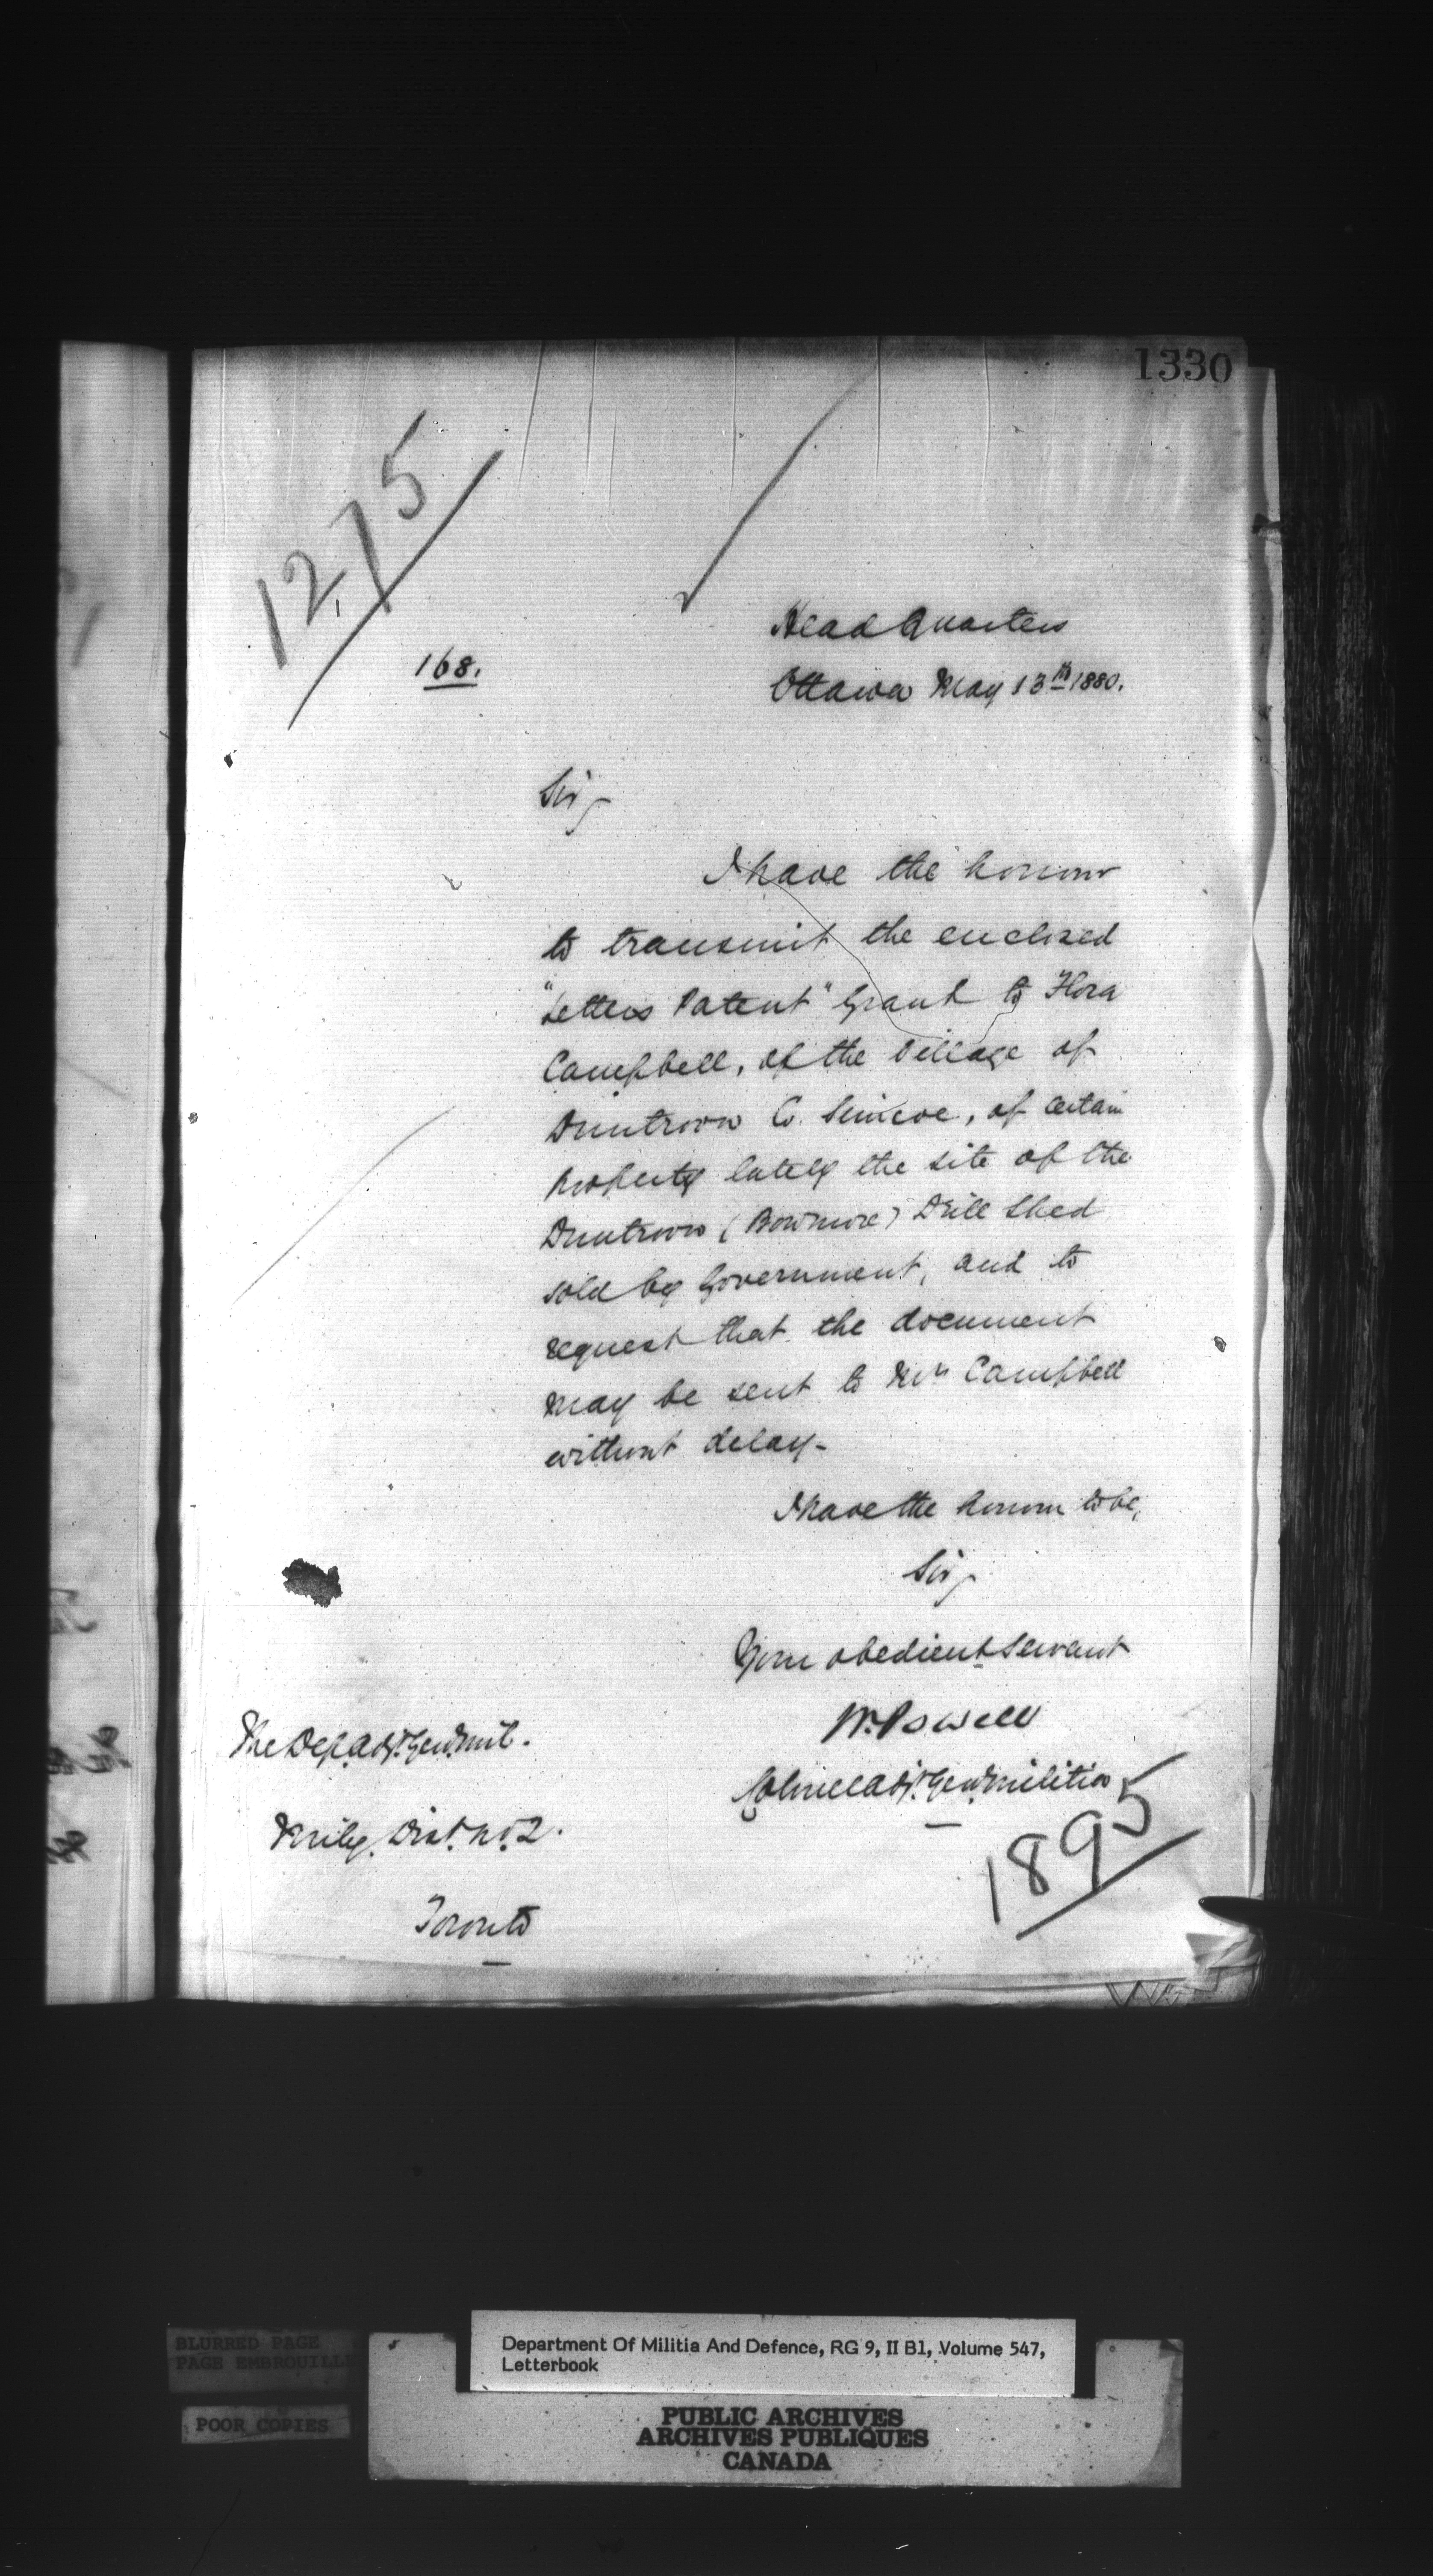 1330
1275
168.
Head Quarters
Ottawa May 13th 1880.
Sir,
I have the honour
to transmit the enclosed
"Letters Patent" Grant to Flora
Campbell, of the Village of
Duntroon Co. Simcoe, of certain
property lately the site of the
Duntroon (Bowmore) Drill Shed
sold by Government, and to
request that the document
may be sent to Mrs Campbell
without delay-
I have the honour to be,
Sir,
Your obedient Servant
W. Powell
Colonel Adjt. Genl. Militia
1895
The Dep. Adjt. Genl. Mil.
Mily. Dist. No. 2.
Toronto
BLURRED PAGE
PAGE EMBROUILL
POOR COPIES
Department Of Militia And Defence, RG 9, II B1, Volume 547,
Letterbook
PUBLIC ARCHIVES
ARCHIVES PUBLIQUES
CANADA